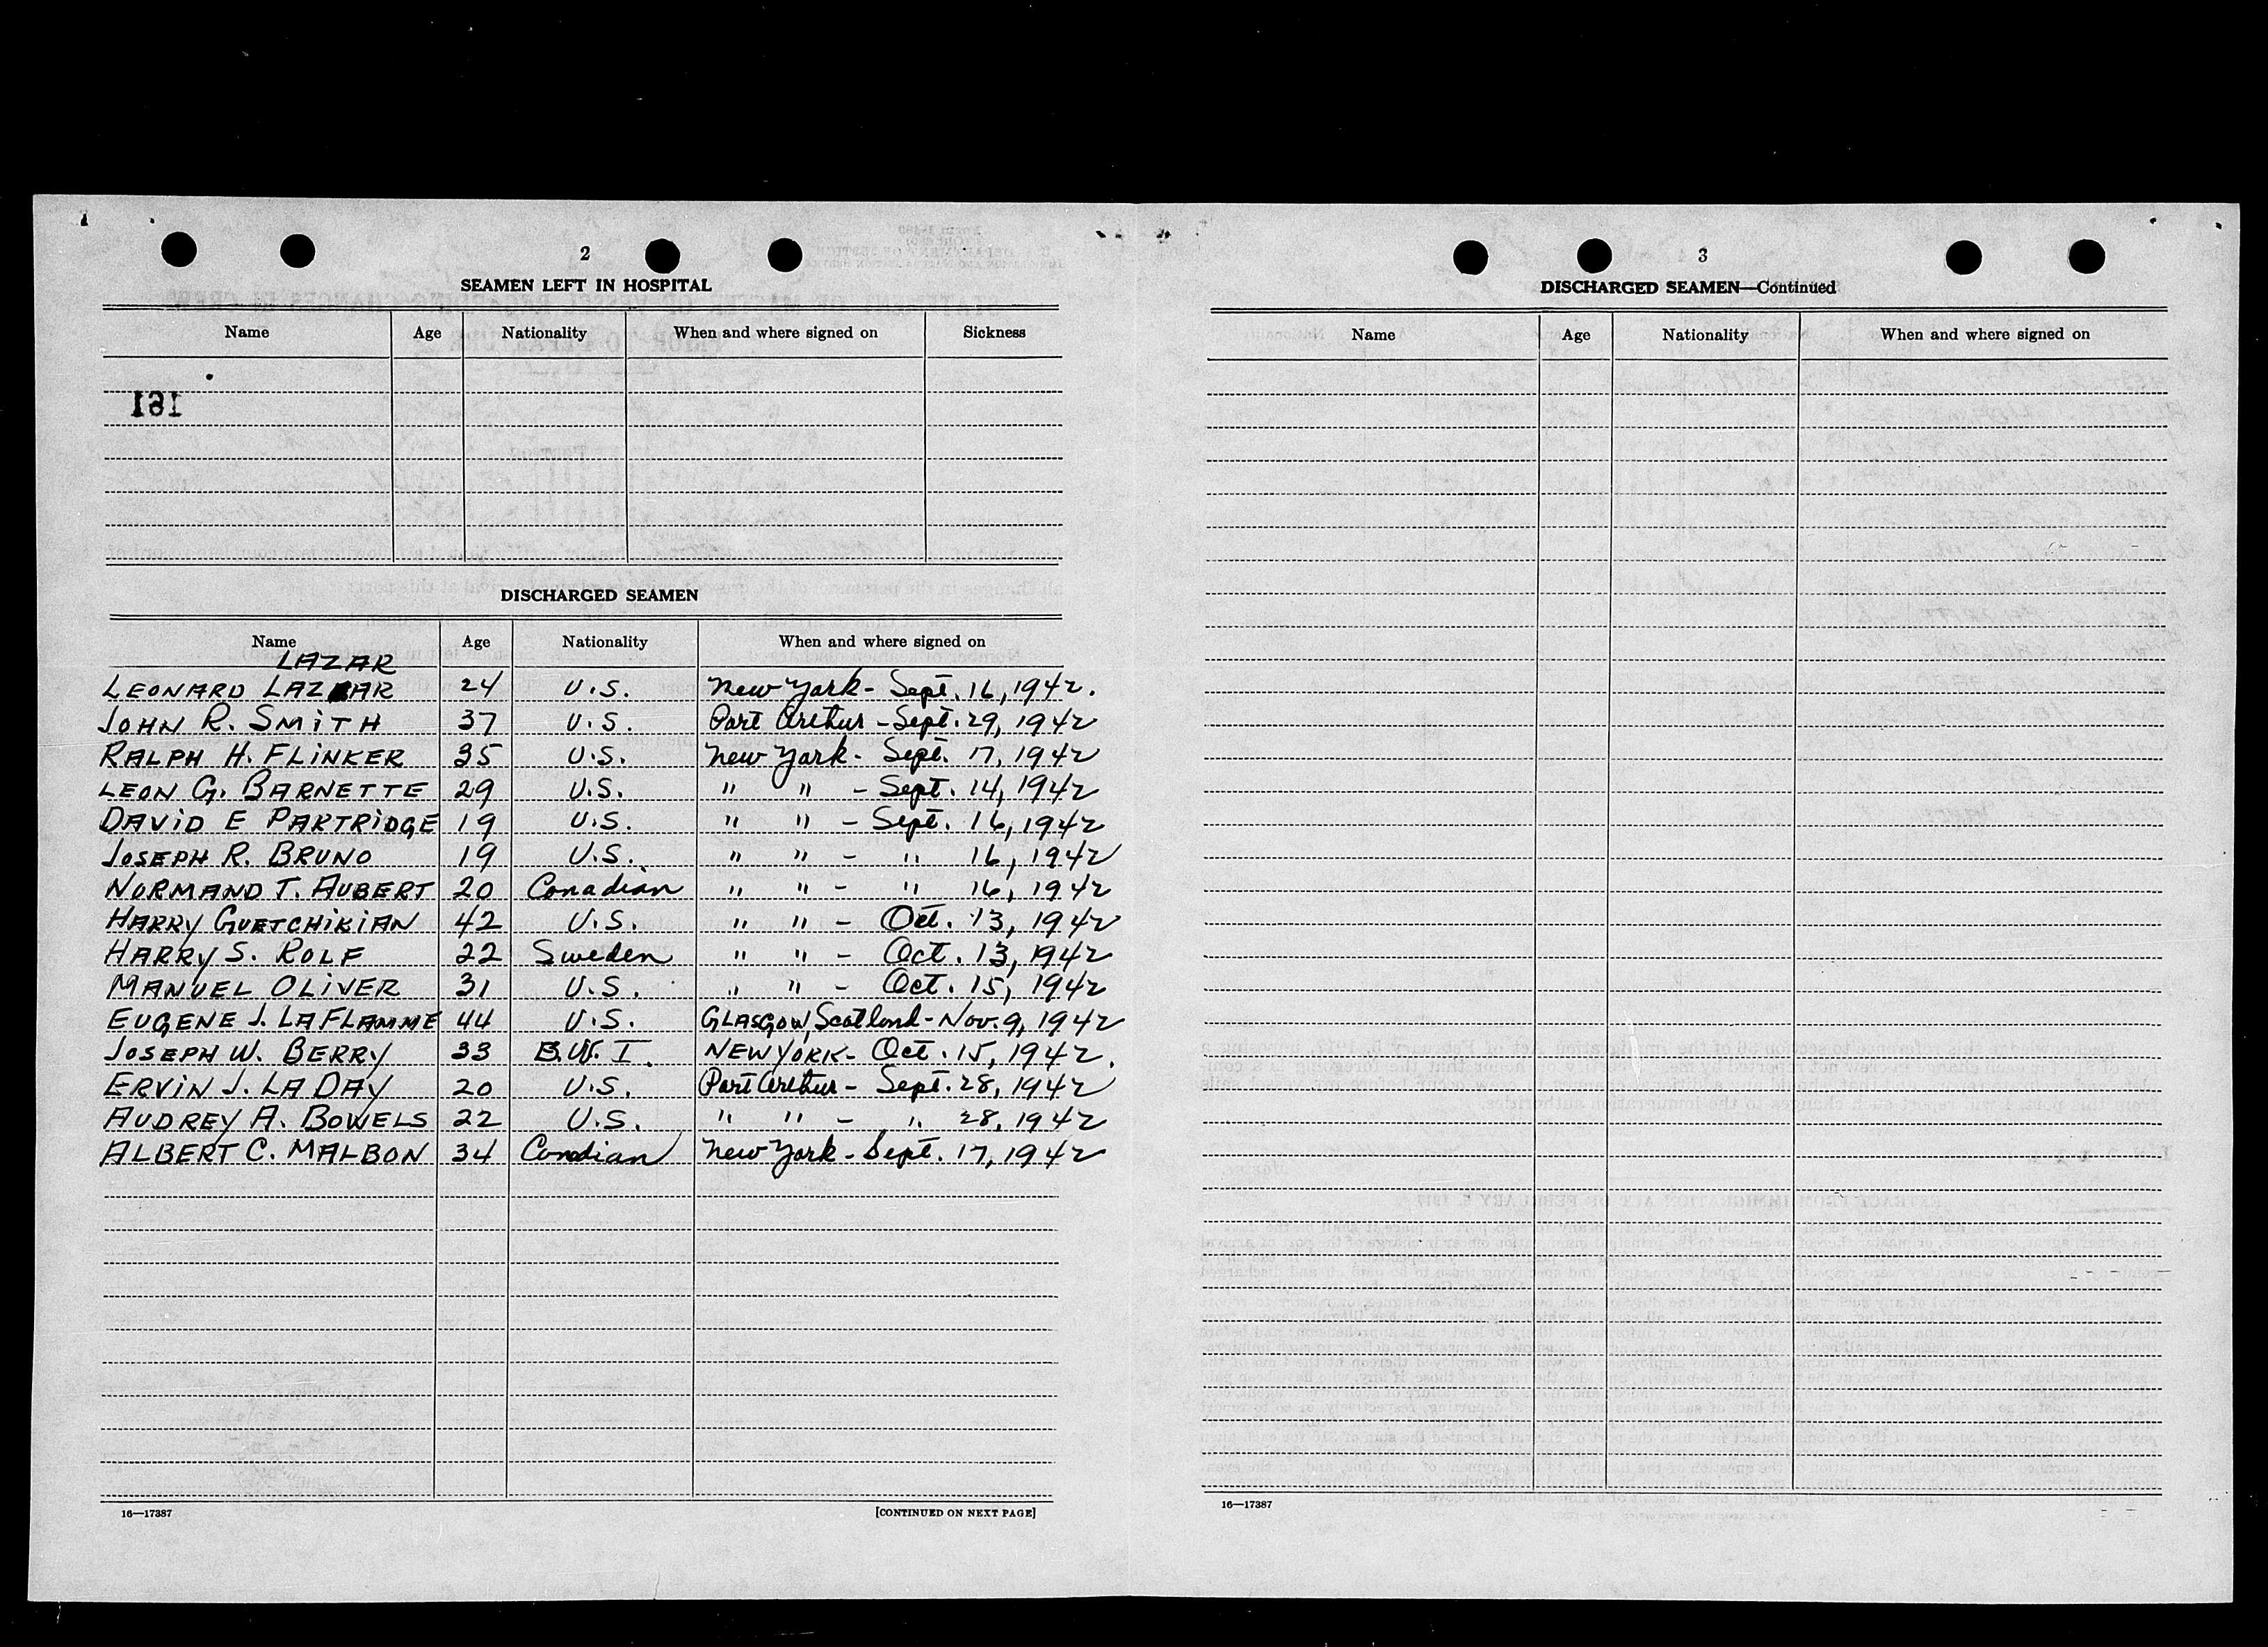 2
SEAMEN LEFT IN HOSPITAL
Name Age Nationality When and where signed on Sickness
181
DISCHARGED SEAMEN
Name Age Nationality When and where signed on
LAZAR
LEONARD LAZAR 24 U.S. New York - Sept. 16, 1942.
JOHN R. SMITH 37 U.S. Port Arthur - Sept. 29, 1942
RALPH H. FLINKER 35 U.S. New York - Sept. 17, 1942
LEON G. BARNETTE 29 U.S. " " - Sept. 14, 1942
DAVID E PARTRIDGE 19 U.S. " " - Sept. 16, 1942
JOSEPH R. BRUNO 19 U.S. " " - " 16, 1942
NORMAND T. AUBERT 20 Canadian " " - " 16, 1942
HARRY GUETCHIKIAN 42 U.S. " " - Oct. 13, 1942
HARRY S. ROLF 22 Sweden " " - Oct. 13, 1942
MANUEL OLIVER 31 U.S. " " - Oct. 15, 1942
EUGENE J. LAFLAMME 44 U.S. GLASGOW, Scotland - Nov. 9, 1942
JOSEPH W. BERRY 33 B.W.I. NEW YORK - Oct. 15, 1942.
ERVIN J. LA DAY 20 U.S. Port Arthur - Sept. 28, 1942
AUDREY A. BOWELS 22 U.S. " " - " 28, 1942
ALBERT C. MALBON 34 Candian New York - Sept. 17, 1942
16—17387 [CONTINUED ON NEXT PAGE]
3
DISCHARGED SEAMEN—Continued
Name Age Nationality When and where signed on
16—17387